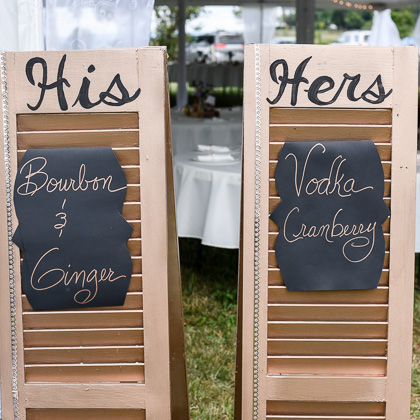 His
Bourbon
&
Ginger
Hers
Vodka
Cranberry